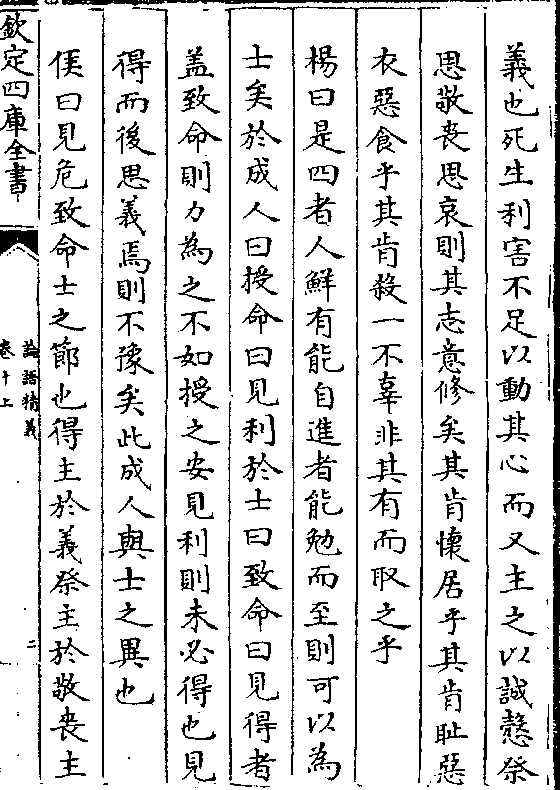 義也死生利害不足以動其心而又主之以誠慤祭
思敬喪思哀則其志意修矣其肯懷居乎其肯恥惡
衣惡食乎其肯殺一不辜非其有而取之乎
楊曰是四者人鮮有能自進者能勉而至則可以為
士矣於成人曰授命曰見利於士曰致命曰見得者
盖致命則力為之不如授之安見利則未必得也見
得而後思義焉則不豫矣此成人與士之異也
侯曰見危致命士之節也得主於義祭主於敬喪主
欽定四庫全書
論語精義
卷十上
二